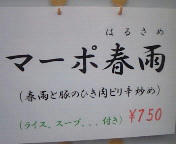 はるさめ
マーポ春雨
(春雨と豚のひき肉ピリ辛炒め)
(ライス、スープ...付き) ¥750